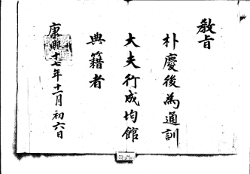 敎旨
朴慶後為通訓
大夫行成均館
典籍者
康熙十七年十一月初六日